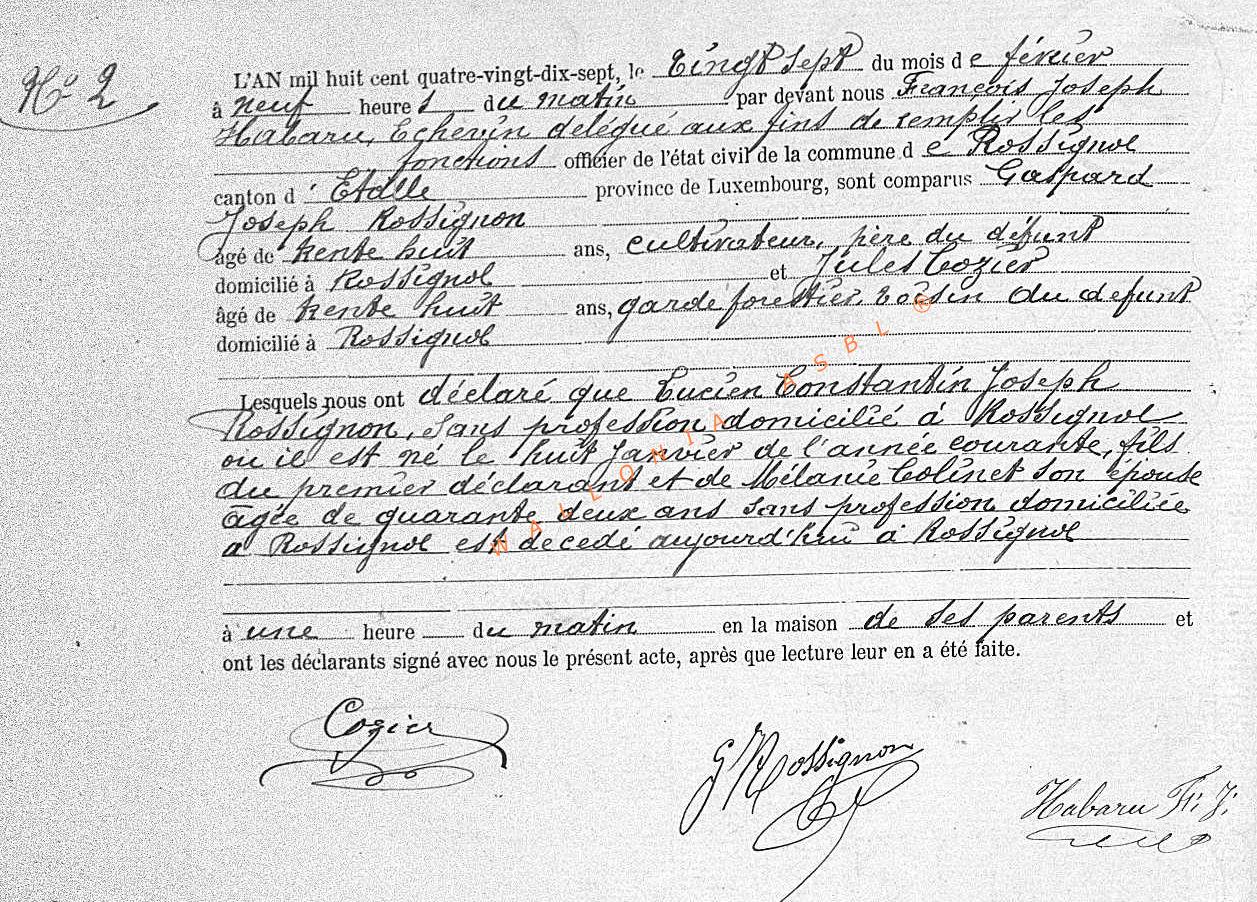 N° 2
L'AN mil huit cent quatre-vingt-dix-sept, le Vingt sept du mois de février
à neuf heures du matin par devant nous François Joseph
Habaru, Echevin delégué aux fins de remplir les
fonctions officier de l'état civil de la commune de Rossignol
canton d'Etalle province de Luxembourg, sont comparus Gaspard
Joseph Rossignon
âgé de trente huit ans, cultivateur, père du défunt
domicilié à Rossignol et Jules Cozier
âgé de trente huit ans, garde forestier voisin du defunt
domicilié à Rossignol
Lesquels nous ont déclaré que Lucien Constantin Joseph
Rossignon, sans profession domicilié à Rossignol
ou il est né le huit Janvier de l'année courante, fils
du premier déclarant et de Mélanie Colinet son épouse
agée de quarante deux ans sans profession domiciliée
a Rossignol est decedé aujourd'hui à Rossignol
à une heure du matin en la maison de ses parents et
ont les déclarants signé avec nous le présent acte, après que lecture leur en a été faite.
Cozier
G Rossignon
Habaru Fs. J.
WALLONIA ASBL ©